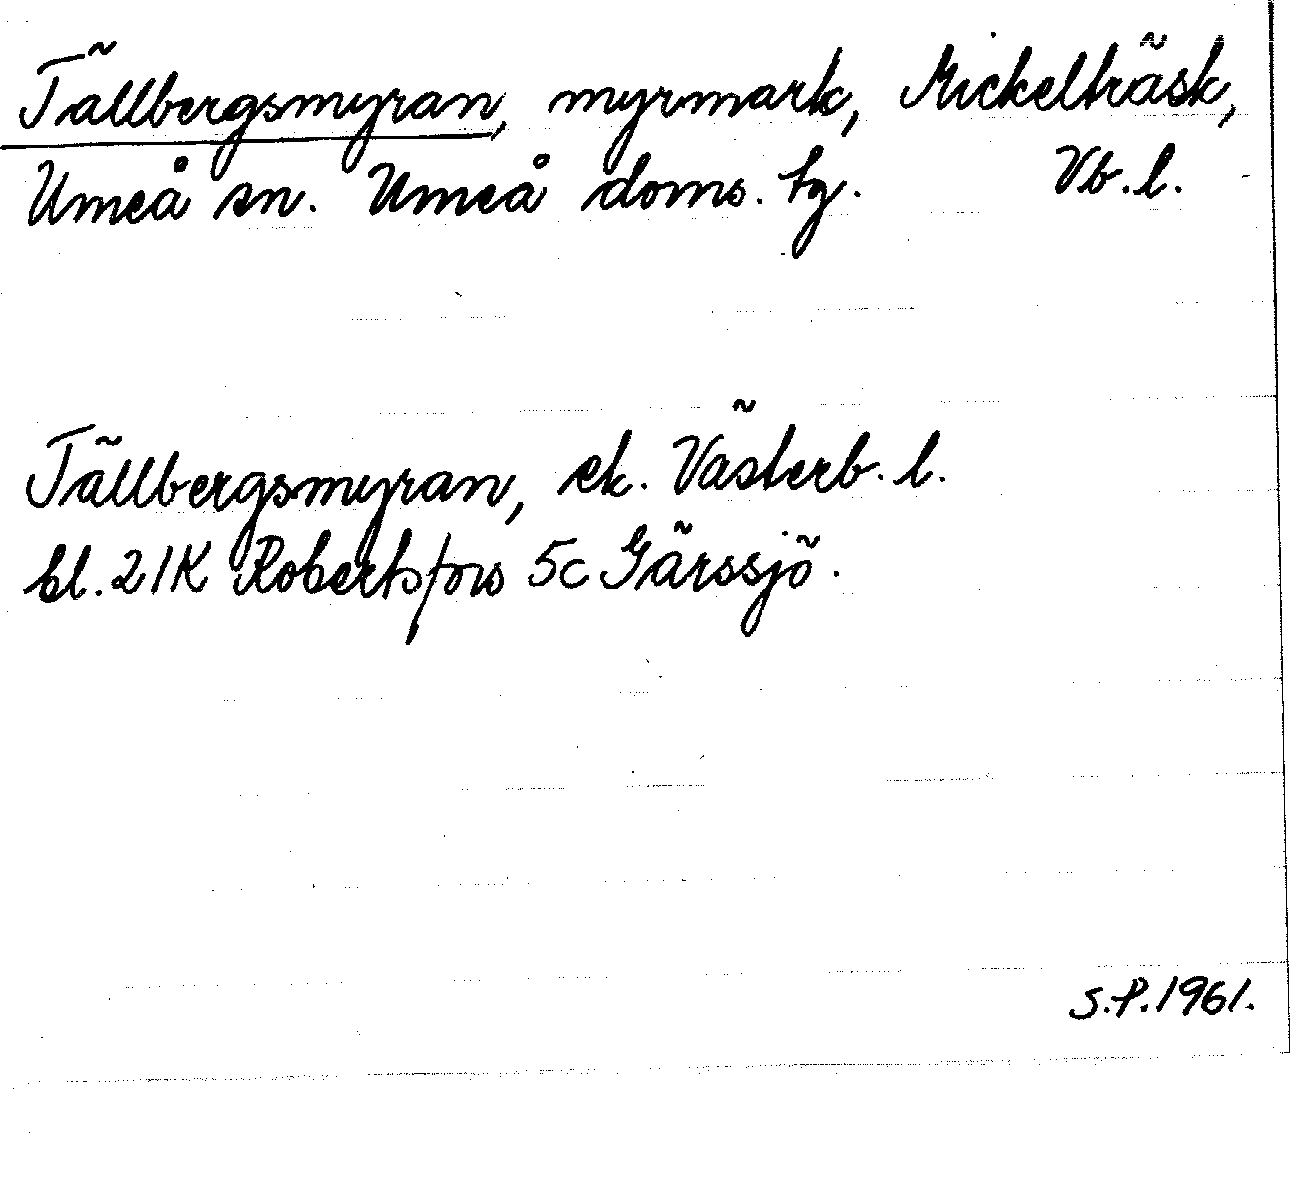 Tällbergsmyran, myrmark, Mickelträsk,
Umeå sn. Umeå doms. tg. Vb. l.
Tällbergsmyran, ek. Västerb. l.
bl. 21K Robertsfors 5c Gärssjö.
S.P. 1961.